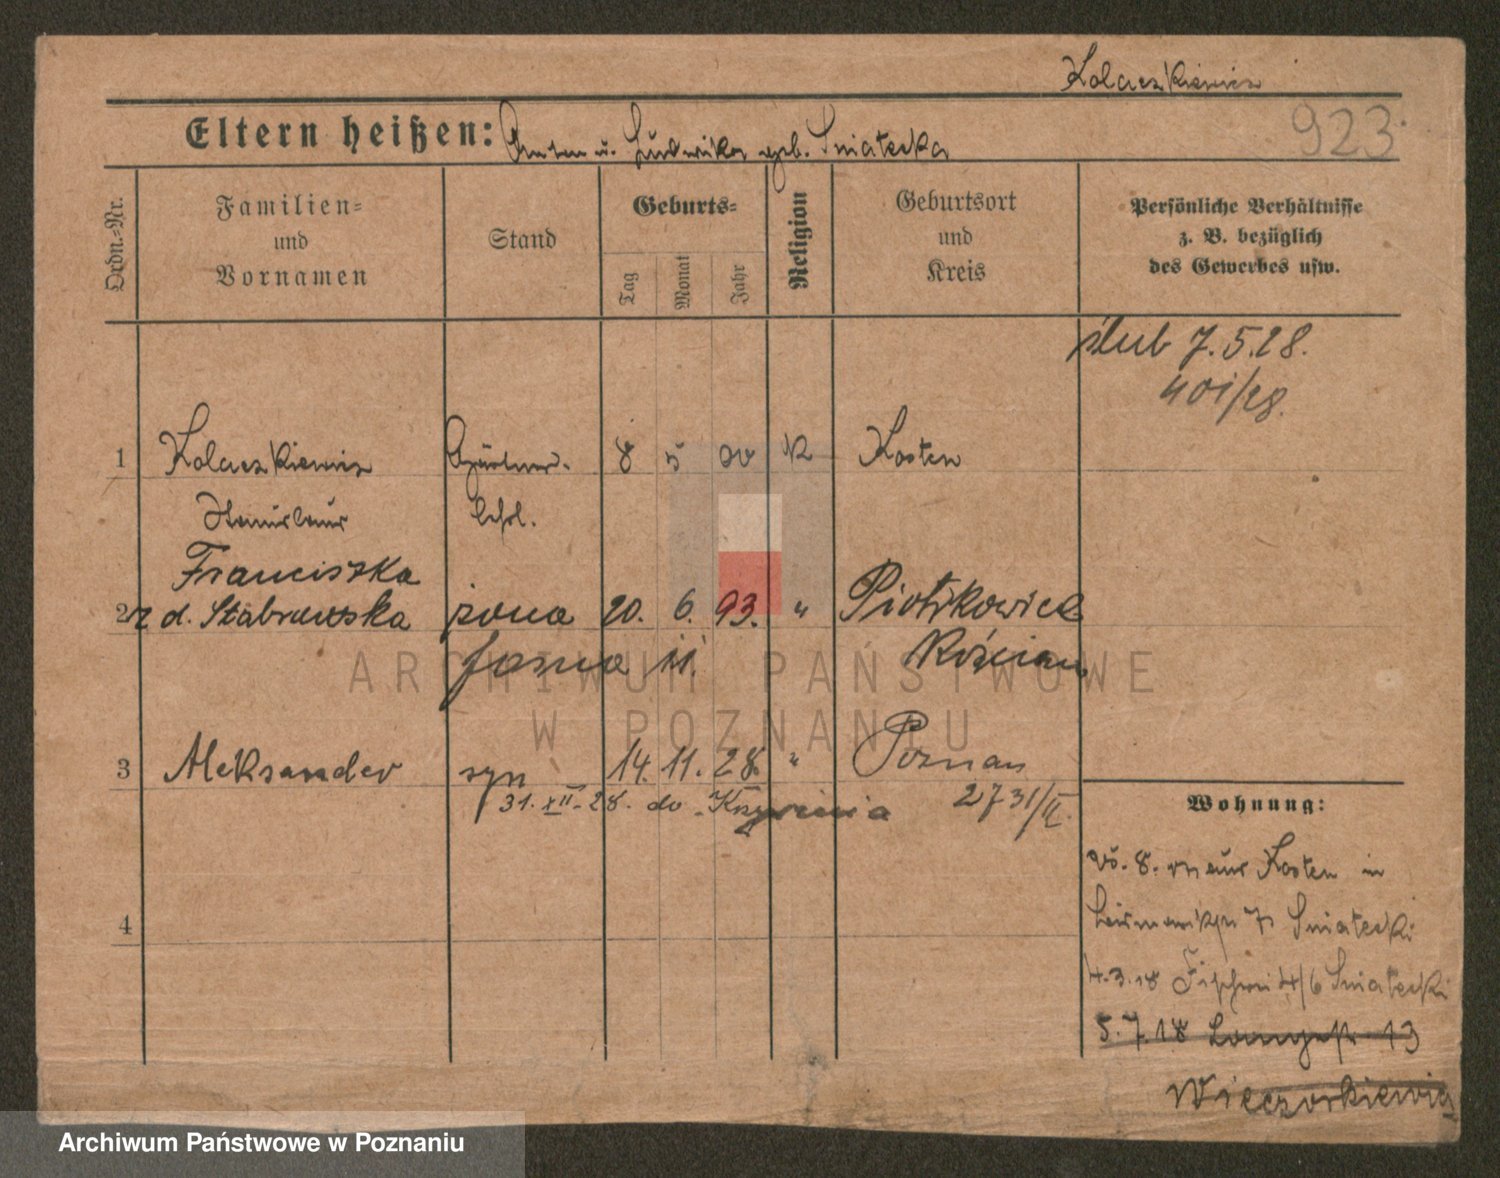 Kolaczkiewicz
923
Eltern heißen: Anton u. Ludwika geb. Sniatecka
Ordn.-Nr.
Familien- und Vornamen
Stand
Geburts-
Tag
Monat
Jahr
Religion
Geburtsort und Kreis
Persönliche Verhältnisse
z. B. bezüglich
des Gewerbes usw.
ślub 7.5.28.
401/28.
1 Kolaczkiewicz Gärtner- 8 5 K Kosten
Stanislaus lehrl.
Franciszka
2 z d. Stabrowska żona 20. 6. 93. " Piotrkowice
Kościan
3 Aleksander syn 14. 11. 28. " Poznań
31. XII. 28. do Krzywinia 2731/II.
Wohnung:
8. Kosten in
4 7 Sniatecki
4.3.18 4/6 Sniatecki
5.7.18 Langestr 13
Wieczorkiewicz
ARCHIWUM PAŃSTWOWE
W POZNANIU
Archiwum Państwowe w Poznaniu